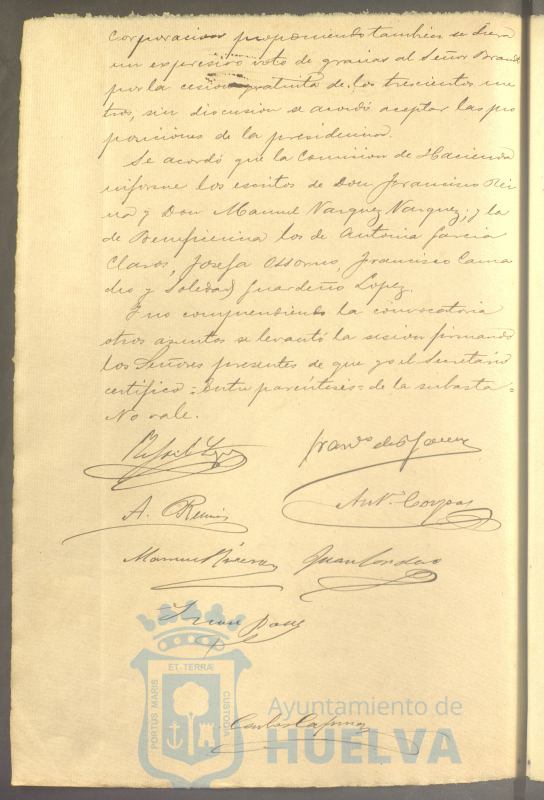 corporacion proponiendo tambien se diera
un expresivo voto de gracias al Señor Brandt
por la cesion gratuita de los trescientos me
tros, sin discusion se acordó aceptar las pro
posiciones de la presidencia.
Se acordó que la Comision de Hacienda
informe los escritos de Don Francisco Rei
na y Don Manuel Vazquez Vazquez; y la
de Beneficencia los de Antonia Garcia
Claros, Josefa Ossorno, Francisco Cama
cho y Soledad Guardeño Lopez.
Y no comprendiendo la convocatoria
otros asuntos se levantó la sesion firmando
los Señores presentes de que yo el Secretario
certifico = Entre paréntesis = de la subasta =
No vale.
Rafael
A.
Ant.º Corpas
Manuel
Juan
PORTUS MARIS
ET TERRÆ
CUSTODIA
Ayuntamiento de
HUELVA